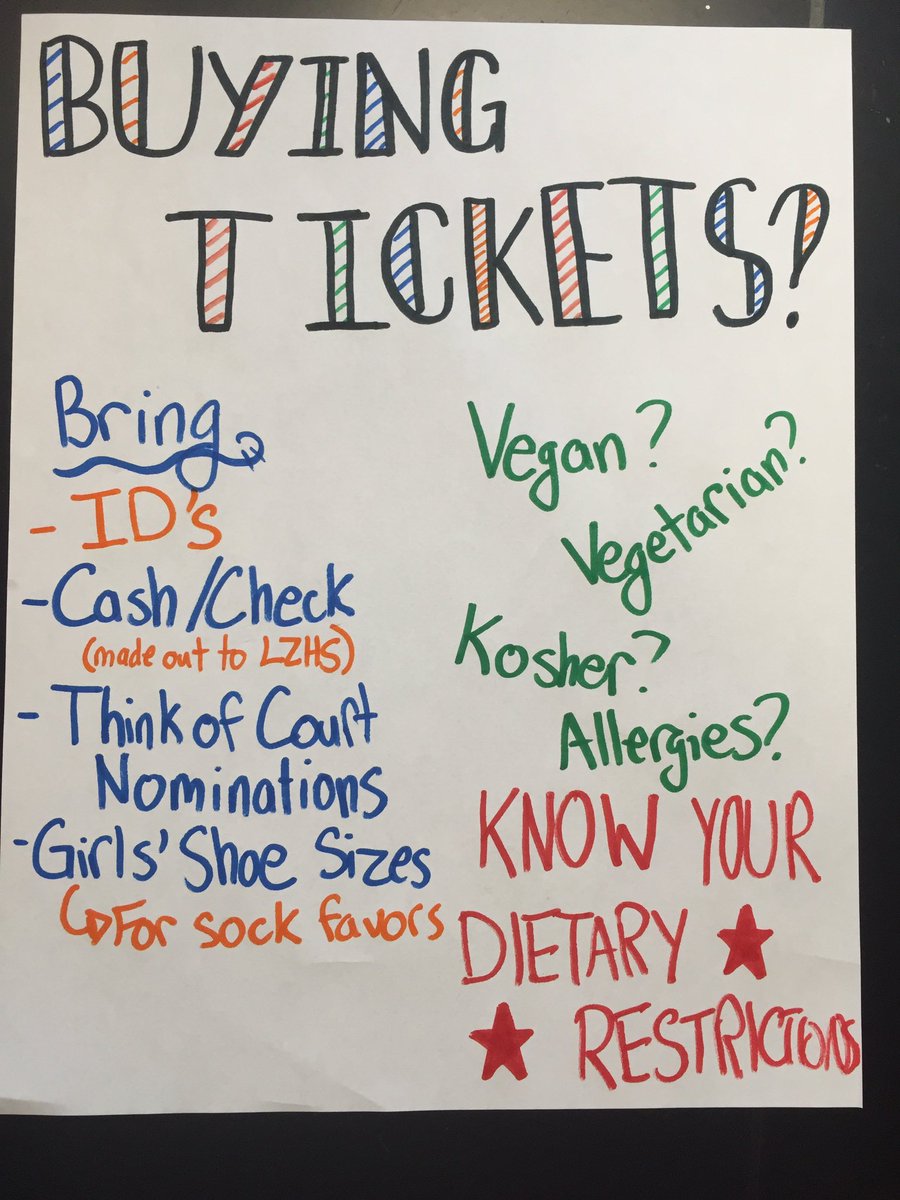 BUYING
TICKETS?
Bring
- ID's
- Cash/Check
(made out to LZHS)
- Think of Court
Nominations
- Girls' Shoe Sizes
↳ For sock favors
Vegan?
Vegetarian?
Kosher?
Allergies?
KNOW YOUR
DIETARY ★
★ RESTRICTIONS